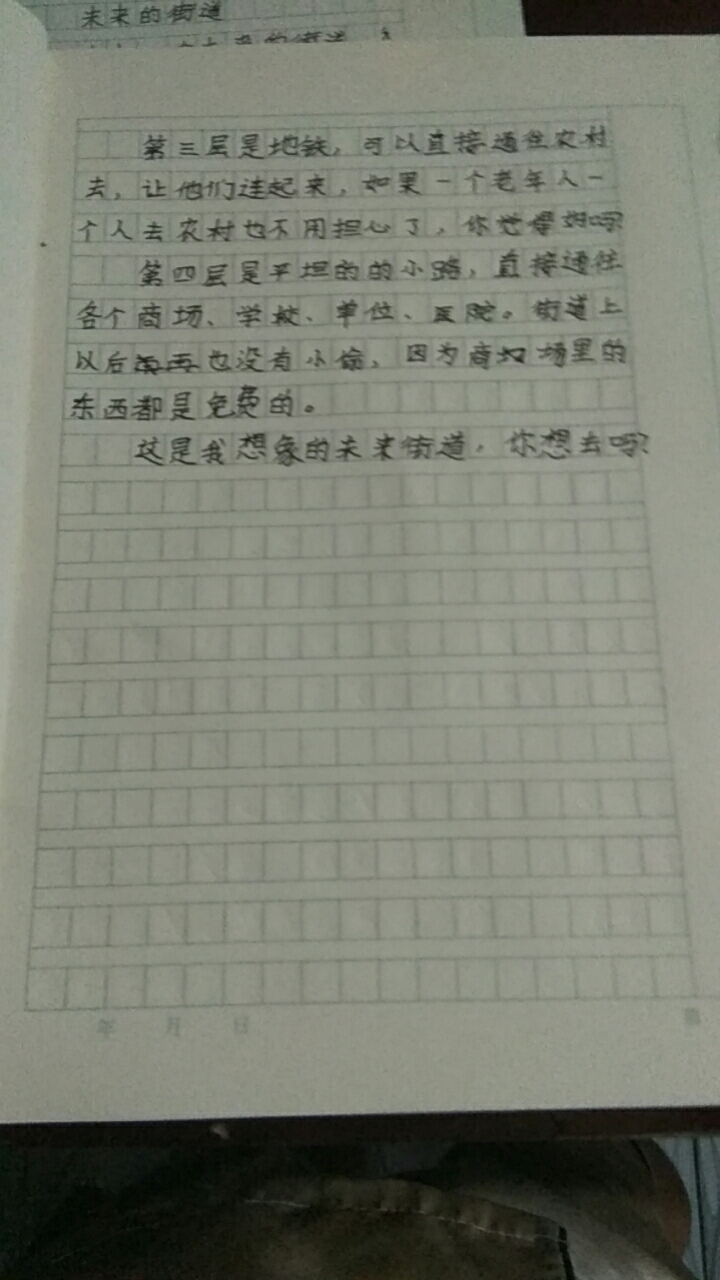 未来的街道
第三层是地铁，可以直接通往农村
去，让他们连起来，如果一个老年人一
个人去农村也不用担心了，你觉得好吗？
第四层是平坦的的小路，直接通往
各个商场、学校、单位、医院。街道上
以后也没有小偷，因为商场里的
东西都是免费的。
这是我想象的未来街道，你想去吗？
年 月 日
第